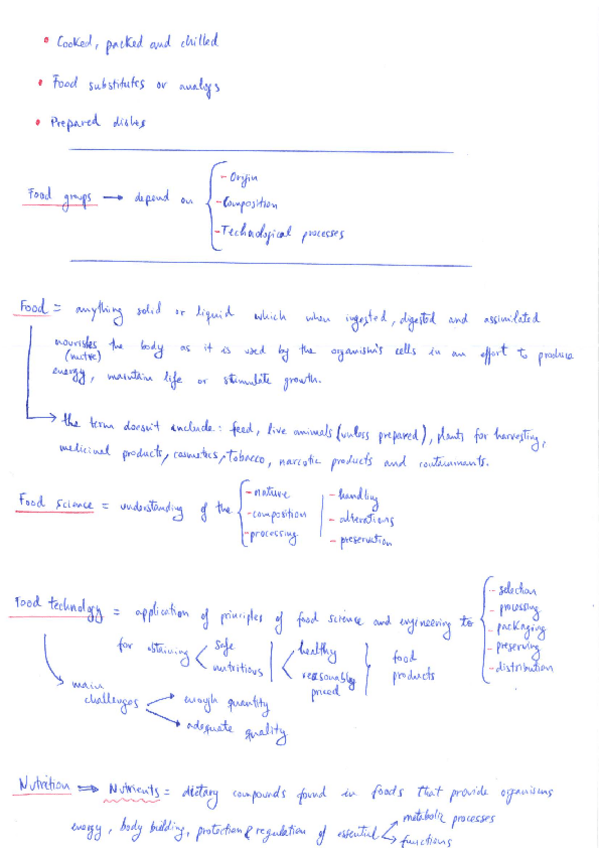 • Cooked, packed and chilled
• Food substitutes or analogs
• Prepared dishes
Food groups → depend on { - Origin
- Composition
- Technological processes
Food = anything solid or liquid which when ingested, digested and assimilated
nourishes the body as it is used by the organism's cells in an effort to produce
(nutre)
energy, maintain life or stimulate growth.
→ the term doesn't include: feed, live animals (unless prepared), plants for harvesting,
medicinal products, cosmetics, tobacco, narcotic products and contaminants.
Food science = understanding of the { - nature | - handling
- composition | - alterations
- processing | - preservation
Food technology = application of principles of food science and engineering to { - selection
- processing
- packaging
- preserving
- distribution
for obtaining < safe | < healthy } food
nutritious | reasonably priced } products
→ main challenges → enough quantity
→ adequate quality
Nutrition ⇒ Nutrients = dietary compounds found in foods that provide organisms
energy, body building, protection & regulation of essential → metabolic processes
→ functions